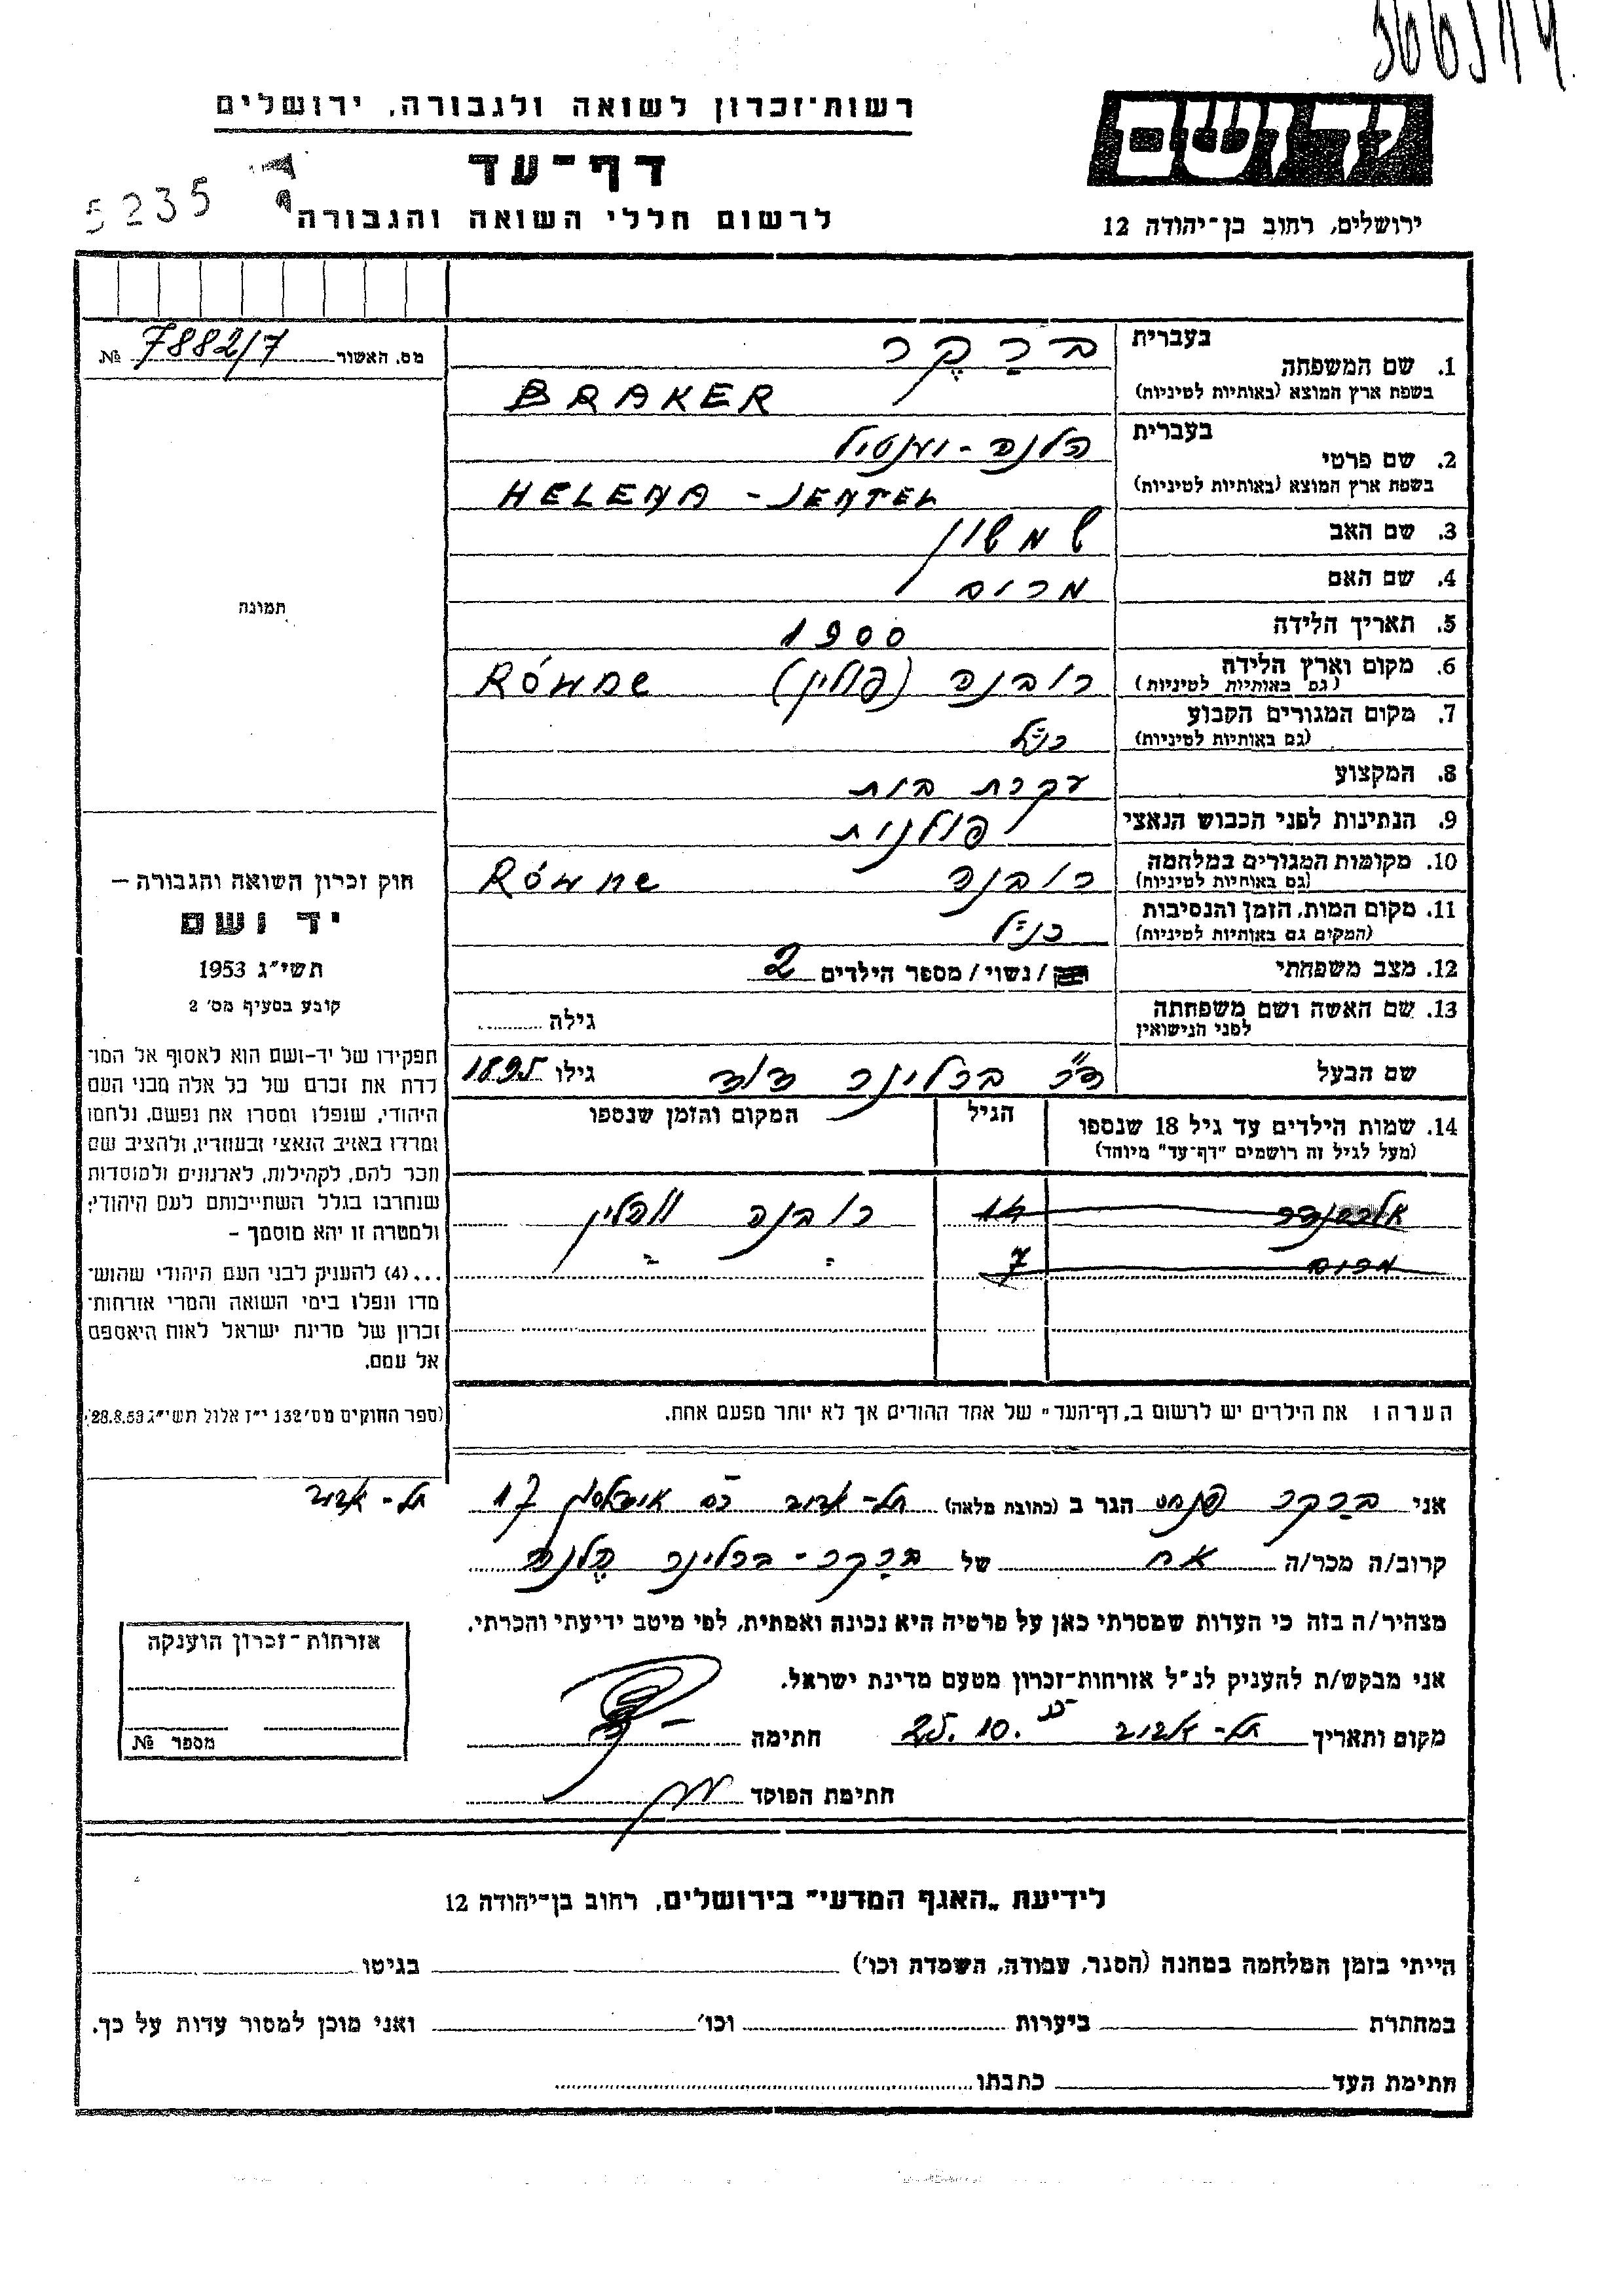 רשות־זכרון לשואה ולגבורה, ירושלים
דף־עד
לרשום חללי השואה והגבורה
5235
יד ושם
ירושלים, רחוב בן־יהודה 12
מס. האשור 7882/7 №
תמונה
חוק זכרון השואה והגבורה –
יד ושם
תשי״ג 1953
קובע בסעיף מס׳ 2
תפקידו של יד-ושם הוא לאסוף אל המו־
לדת את זכרם של כל אלה מבני העם
היהודי, שנפלו ומסרו את נפשם, נלחמו
ומרדו באויב הנאצי ובעוזריו, ולהציב שם
וזכר להם, לקהילות, לארגונים ולמוסדות
שנחרבו בגלל השתייכותם לעם היהודי;
ולמטרה זו יהא מוסמך –
...(4) להעניק לבני העם היהודי שהוש־
מדו ונפלו בימי השואה והמרי אזרחות־
זכרון של מדינת ישראל לאות היאספם
אל עמם.
(ספר החוקים מס׳ 132 י״ז אלול תשי״ג 28.8.53)
1. שם המשפחה בעברית בְּרַקֶר
בשפת ארץ המוצא (באותיות לטיניות) BRAKER
2. שם פרטי בעברית הלנה - יענטיל
בשפת ארץ המוצא (באותיות לטיניות) HELENA - JENTEL
3. שם האב שמשון
4. שם האם מרים
5. תאריך הלידה 1900
6. מקום וארץ הלידה (גם באותיות לטיניות) רובנה (פולין) Równe
7. מקום המגורים הקבוע (גם באותיות לטיניות) כנ״ל
8. המקצוע עקרת בית
9. הנתינות לפני הכבוש הנאצי פולנית
10. מקומות המגורים במלחמה (גם באותיות לטיניות) רובנה Równe
11. מקום המות, הזמן והנסיבות (המקום גם באותיות לטיניות) כנ״ל
12. מצב משפחתי / נשוי / מספר הילדים 2
13. שם האשה ושם משפחתה לפני הנישואין גילה
שם הבעל ד״ר ברלינר דוד גילו 1895
14. שמות הילדים עד גיל 18 שנספו הגיל המקום והזמן שנספו
(מעל לגיל זה רושמים "דף־עד" מיוחד)
אלכסנדר 14 רובנה פולין
מרים 7 " " "
הערה: את הילדים יש לרשום ב„דף־העד" של אחד ההורים אך לא יותר מפעם אחת.
אני ברקר פנחס הגר ב (כתובת מלאה) תל-אביב 17 תל-אביב
קרוב/ה מכר/ה אח של ברקר-ברלינר הלנה
מצהיר/ה בזה כי העדות שמסרתי כאן על פרטיה היא נכונה ואמתית, לפי מיטב ידיעתי והכרתי.
אני מבקש/ת להעניק לנ״ל אזרחות־זכרון מטעם מדינת ישראל.
מקום ותאריך תל-אביב 25.10. חתימה
חתימת הפוקד
אזרחות־זכרון הוענקה
מספר №
לידיעת „האגף המדעי" בירושלים, רחוב בן־יהודה 12
הייתי בזמן המלחמה במחנה (הסגר, עבודה, השמדה וכו׳) בגיטו
במחתרת ביערות וכו׳ ואני מוכן למסור עדות על כך.
חתימת העד כתבתו